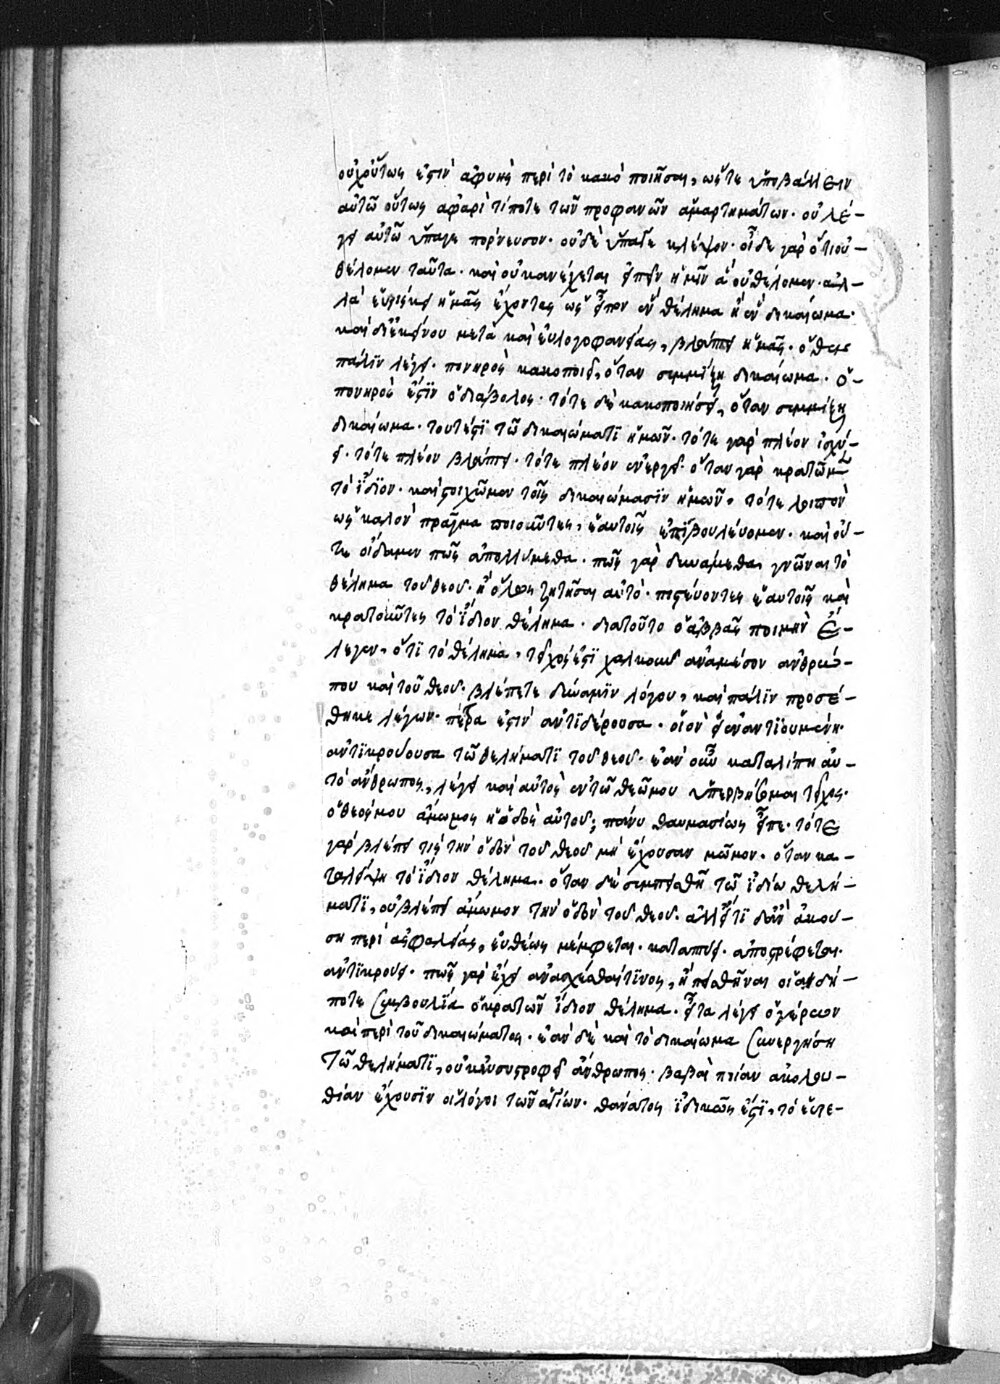 οὐχ οὕτως ἐστὶν ἀφυὴς περὶ τὸ κακοποιῆσαι, ὥστε ὑποβάλλειν
αὐτῶ οὕτως ἀφαρί τίποτε τῶν προφανῶν ἁμαρτημάτων. οὐ λέ-
γει αὐτῶ ὕπαγε πόρνευσον. οὐδὲ ὕπαγε κλέψον. οἶδε γὰρ ὅτι οὐ
θέλομεν ταῦτα. καὶ οὐκ ἀνέχεται εἰπεῖν ἡμῖν ἃ οὐ θέλομεν. ἀλ-
λὰ εὑρίσκει ἡμᾶς ἔχοντας ὡς εἶπον ἓν θέλημα ἢ ἓν δικαίωμα.
καὶ δι' ἐκείνου μετὰ καὶ εὐλογοφανείας, βλάπτει ἡμᾶς. ὅθεν
πάλιν λέγει. πονηρὸς κακοποιεῖ, ὅταν συμμίξη δικαίωμα. ὁ
πονηρός ἐστιν ὁ διάβολος. τότε δὲ κακοποιήσει, ὅταν συμμίξη
δικαίωμα. τουτέστι τῶ δικαιώματι ἡμῶν. τότε γὰρ πλέον ἰσχύ-
ει. τότε πλέον βλάπτει. τότε πλέον ἐνεργεῖ. ὅταν γὰρ κρατῶμεν
τὸ ἴδιον. καὶ στοιχῶμεν τοῖς δικαιώμασιν ἡμῶν, τότε λοιπὸν
ὡς καλὸν πρᾶγμα ποιοῦντες, ἑαυτοῖς ἐπιβουλεύομεν. καὶ οὔ-
τε οἴδαμεν πῶς ἀπολλύμεθα. πῶς γὰρ δυνάμεθα γνῶναι τὸ
θέλημα τοῦ θεοῦ. ἢ ὅλως ζητῆσαι αὐτὸ. πιστεύοντες ἑαυτοῖς καὶ
κρατοῦντες τὸ ἴδιον θέλημα. διατοῦτο ὁ ἀββᾶς ποιμὴν ἔ-
λεγεν, ὅτι τὸ θέλημα, τεῖχός ἐστι χαλκοῦν ἀναμέσον ἀνθρώ-
που καὶ τοῦ θεοῦ. βλέπετε δύναμιν λόγου, καὶ πάλιν προσέ-
θηκε λέγων. πέτρα ἐστὶν ἀντιδέρουσα. οἷον εἰ ἐναντιουμένη
ἀντικρούουσα τῶ θελήματι τοῦ θεοῦ. ἐὰν οὖν καταλίπη αὐ-
τὸ ἄνθρωπος, λέγει καὶ αὐτὸς ἐν τῶ θεῶ μου ὑπερβήσομαι τεῖχος.
ὁ θεός μου ἄμωμος ἡ ὁδὸς αὐτοῦ; πάνυ θαυμασίως εἶπε. τότε
γὰρ βλέπει τις τὴν ὁδὸν τοῦ θεοῦ μὴ ἔχουσαν μῶμον. ὅταν κα-
ταλείψη τὸ ἴδιον θέλημα. ὅταν δὲ συμπεισθῆ τῶ ἰδίω θελή-
ματι, οὐ βλέπει ἄμωμον τὴν ὁδὸν τοῦ θεοῦ. ἀλλ' εἴ τι δ' ἂν ἀκού-
ση περὶ ἀσφαλείας, εὐθέως μέμφεται. καταπτύει. ἀποστρέφεται.
ἀντικρούει. πῶς γὰρ ἔχει ἀνασχέσθαι τινος, ἢ πεισθῆναι οἱαδή-
ποτε συμβουλία ὁ κρατῶν ἴδιον θέλημα. εἶτα λέγει ὁ γέρων
καὶ περὶ τοῦ δικαιώματος. ἐὰν δὲ καὶ τὸ δικαίωμα συνεργήση
τῶ θελήματι, οὐκ εὐσυστροφεῖ ἄνθρωπος. βαβαὶ ποίαν ἀκολου-
θίαν ἔχουσιν οἱ λόγοι τῶν ἁγίων. θάνατος ἰδικῶς ἐστι, τὸ ὅτε-